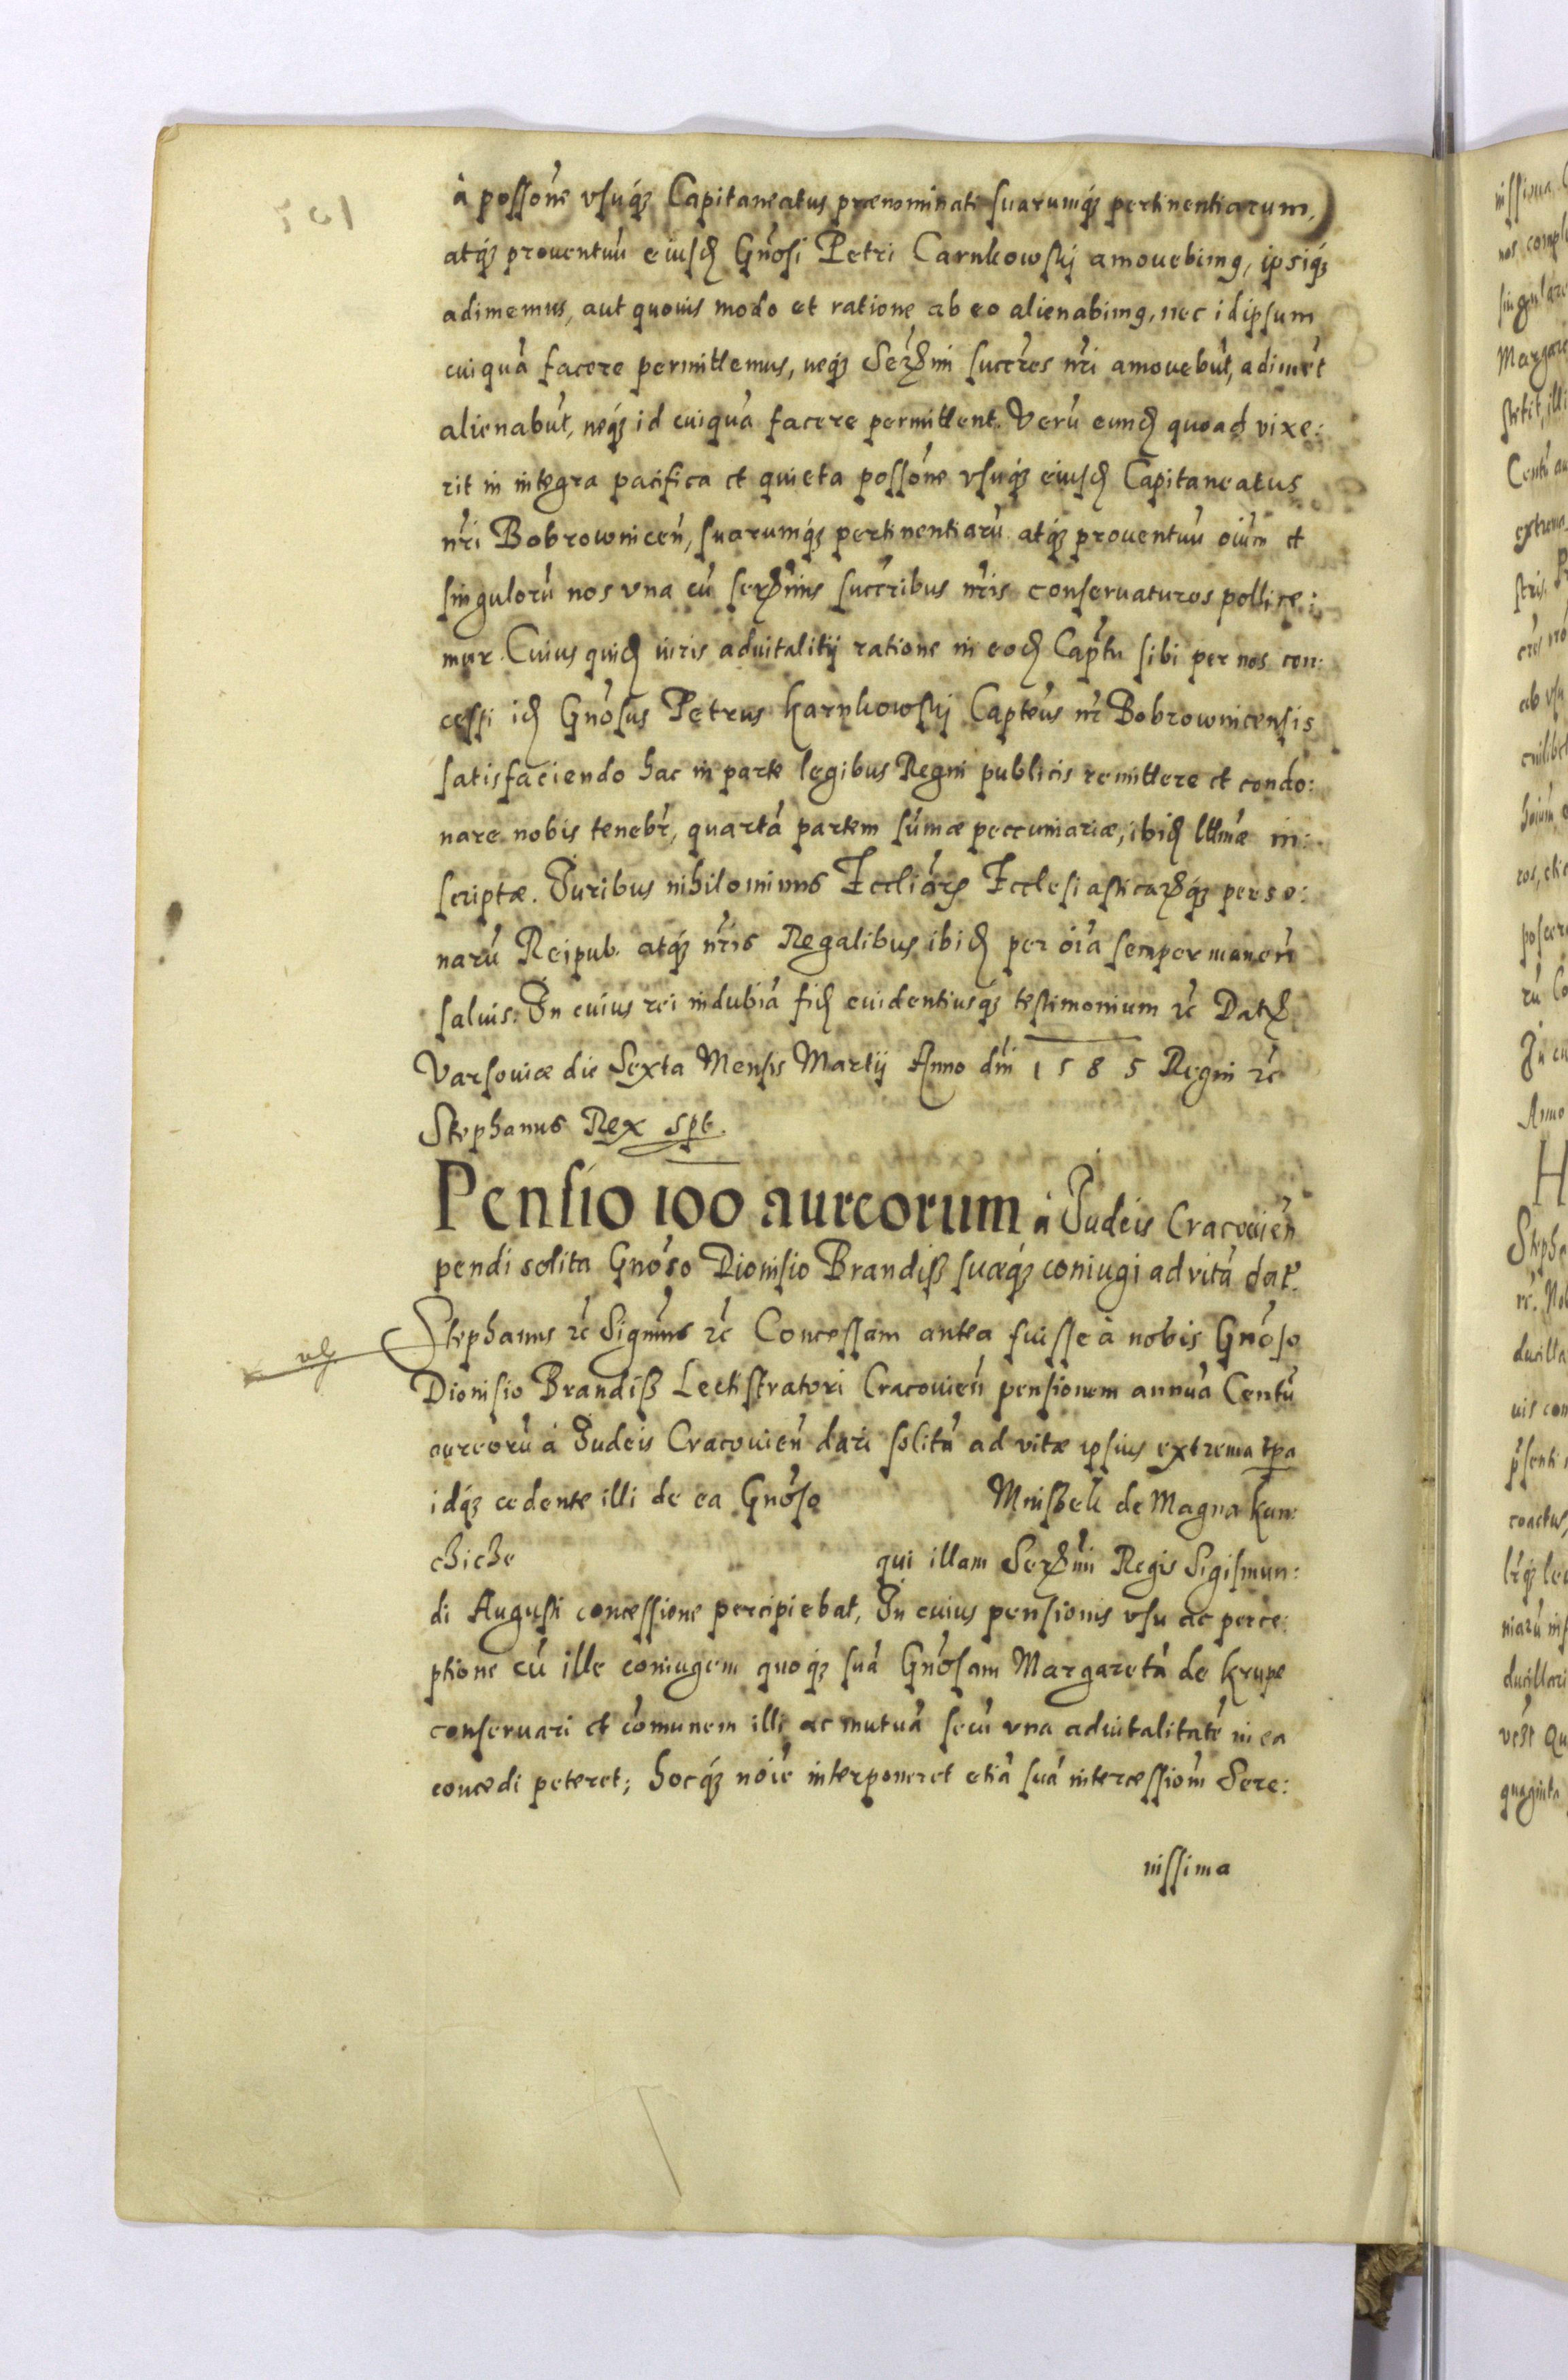 à possone̅ vsuq́ꝫ Capitaneatus prænominati suarumq́ꝫ pertinentiarum,
atq́ꝫ prouentuu̅ eiusdꝫ Gno̅si Petri Carnkowskj amouebimꝰ, ipsiq́ꝫ
adimemus, aut quouis modo et ratione ab eo alienabimꝰ, nec idipsum
cuiqua̅ facere permittemus, neq́ꝫ Serꝫmi succ̅res nr̅i amouebu̅t, adime̅t
alienabu̅t, neq́ꝫ id cuiqua̅ facere permittent. Veru̅ eundꝫ quoad vixe:
rit in integra pacifica et quieta posso̅ne vsuq́ꝫ eiusdꝫ Capitaneatus
nr̅i Bobrownicen̅, suarumq́ꝫ pertinentiaru̅ atq́ꝫ prouentuu̅ oi̅um et
singuloru̅ nos vna cu̅ serꝫmis succ̅ribus nr̅is conseruaturos pollice:
mur. Cuius quidꝫ iuris aduitalitij ratione in eodꝫ Cap̅tu sibi per nos con:
cessi idꝫ Gno̅sus Petrus Karnkowskj Capte̅us nr̅ Bobrownicensis
satisfaciendo hac in parte legibus Regni publicis remittere et condo:
nare nobis tenebr̅, quarta̅ partem su̅mæ peccuniariæ, ibidꝫ l̅ttimæ in:
scriptæ. Iuribus nihilominus Eccliar̅ꝫ Ecclesiasticarꝫq́ꝫ perso:
naru̅ Reipub. atq́ꝫ nr̅is Regalibus ibidꝫ per oi̅a semper manen̅
saluis. In cuius rei indubia̅ fidꝫ euidentiusq́ꝫ testimonium ꝛc̅ Datꝫ
Varsouiæ die Sexta Mensis Martij Anno dni̅ 1585 Regni ꝛc̅
Stephanus Rex spt.
Pensio 100 aureorum à Iudeis Cracouien̅
pendi solita Gno̅so Dionisio Brandiß suæq́ꝫ coniugi ad vita̅ dat̅.
Stephanus ꝛc̅ Signm̅us ꝛc̅ Concessam antea fuisse à nobis Gno̅so
Dionisio Brandiß Lectistratori Cracouien̅ pensionem annua̅ Centu̅
aureoru̅ à Iudeis Cracouien̅ dari solita̅ ad vitæ ipsius extrema tp̅a
idq́ꝫ cedente illi de ea Gno̅so Mnißek de Magna Kun:
chiche qui illam Serꝫmi Regis Sigismun:
di Augusti concessione percipiebat, In cuius pensionis vsu ac perce:
ptione cu̅ ille coniugem quoq́ꝫ sua̅ Gno̅sam Margareta̅ de Krupe
conseruari et co̅munem illi ac mutua̅ secu̅ vna aduitalitate̅ in ea
concedi peteret; hocq́ꝫ noi̅e interponeret etia̅ sua̅ intercessiom̅ Sere:
nissima